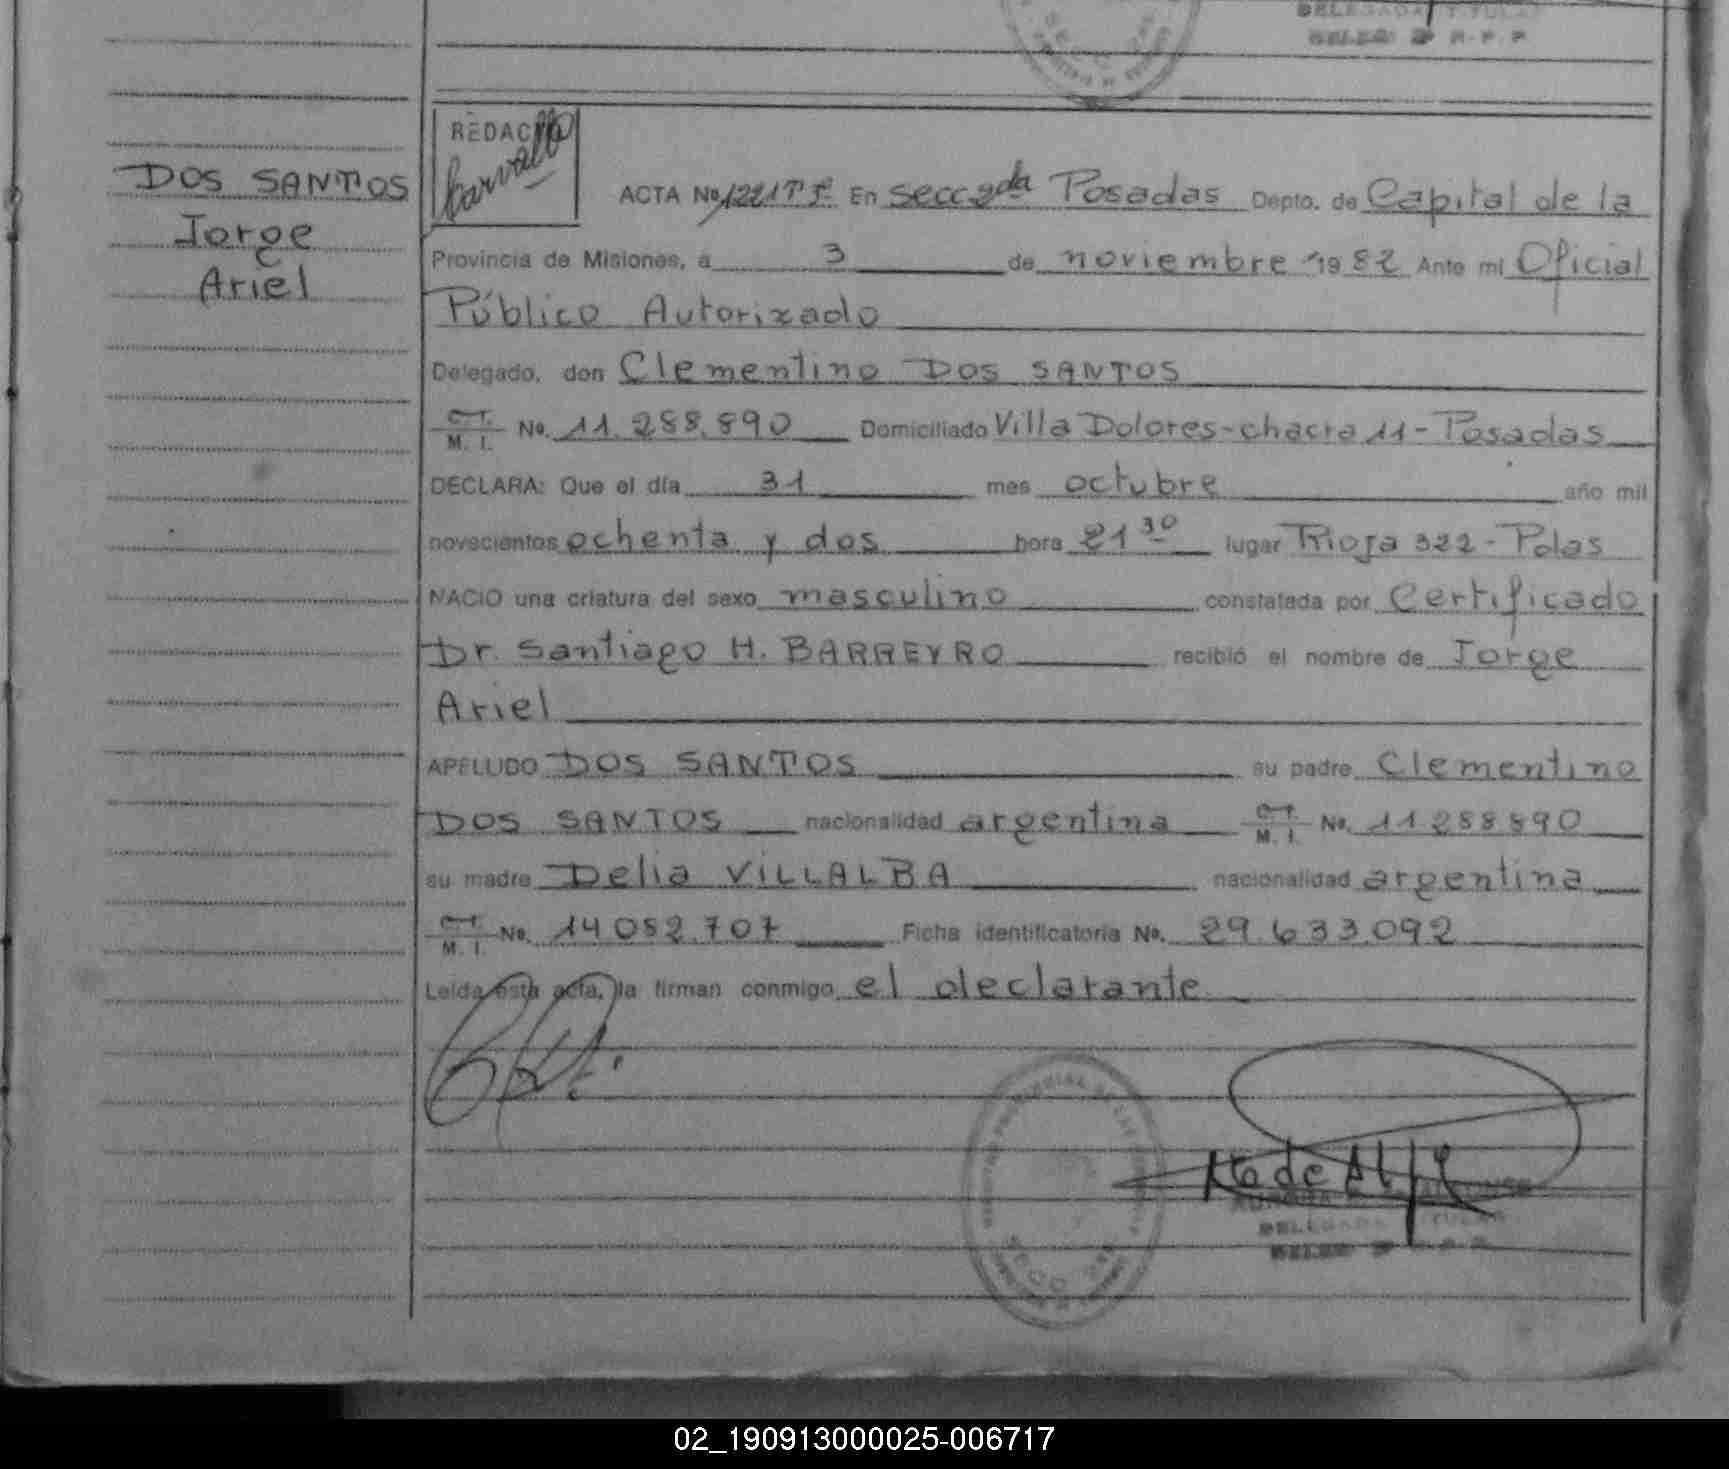 DELEGADA TITULAR
DELEG 2ª R.P.P
DOS SANTOS
Jorge
Ariel
REDACTO
Carvallo
ACTA No 1221 Tº Iº En Secc 2da Posadas Depto. de Capital de la
Provincia de Misiones, a 3 de noviembre 1982 Ante mi Oficial
Público Autorizado
Delegado, don Clementino DOS SANTOS
C.I.
M. I. No. 11.288.890 Domiciliado Villa Dolores-chacra 11-Posadas
DECLARA: Que el día 31 mes octubre año mil
novecientos ochenta y dos hora 21 30 lugar Rioja 322-Pdas
NACIO una criatura del sexo masculino constatada por Certificado
Dr. Santiago H. BARREYRO recibió el nombre de Jorge
Ariel
APELLIDO DOS SANTOS su padre Clementino
DOS SANTOS nacionalidad argentina C.I. M. I. No. 11288890
su madre Delia VILLALBA nacionalidad argentina
C.I. M. I. No. 14052.707 Ficha identificatoria No. 29.633.092
Leída esta acta, la firman conmigo el declarante
DELEGADA TITULAR
02_190913000025-006717